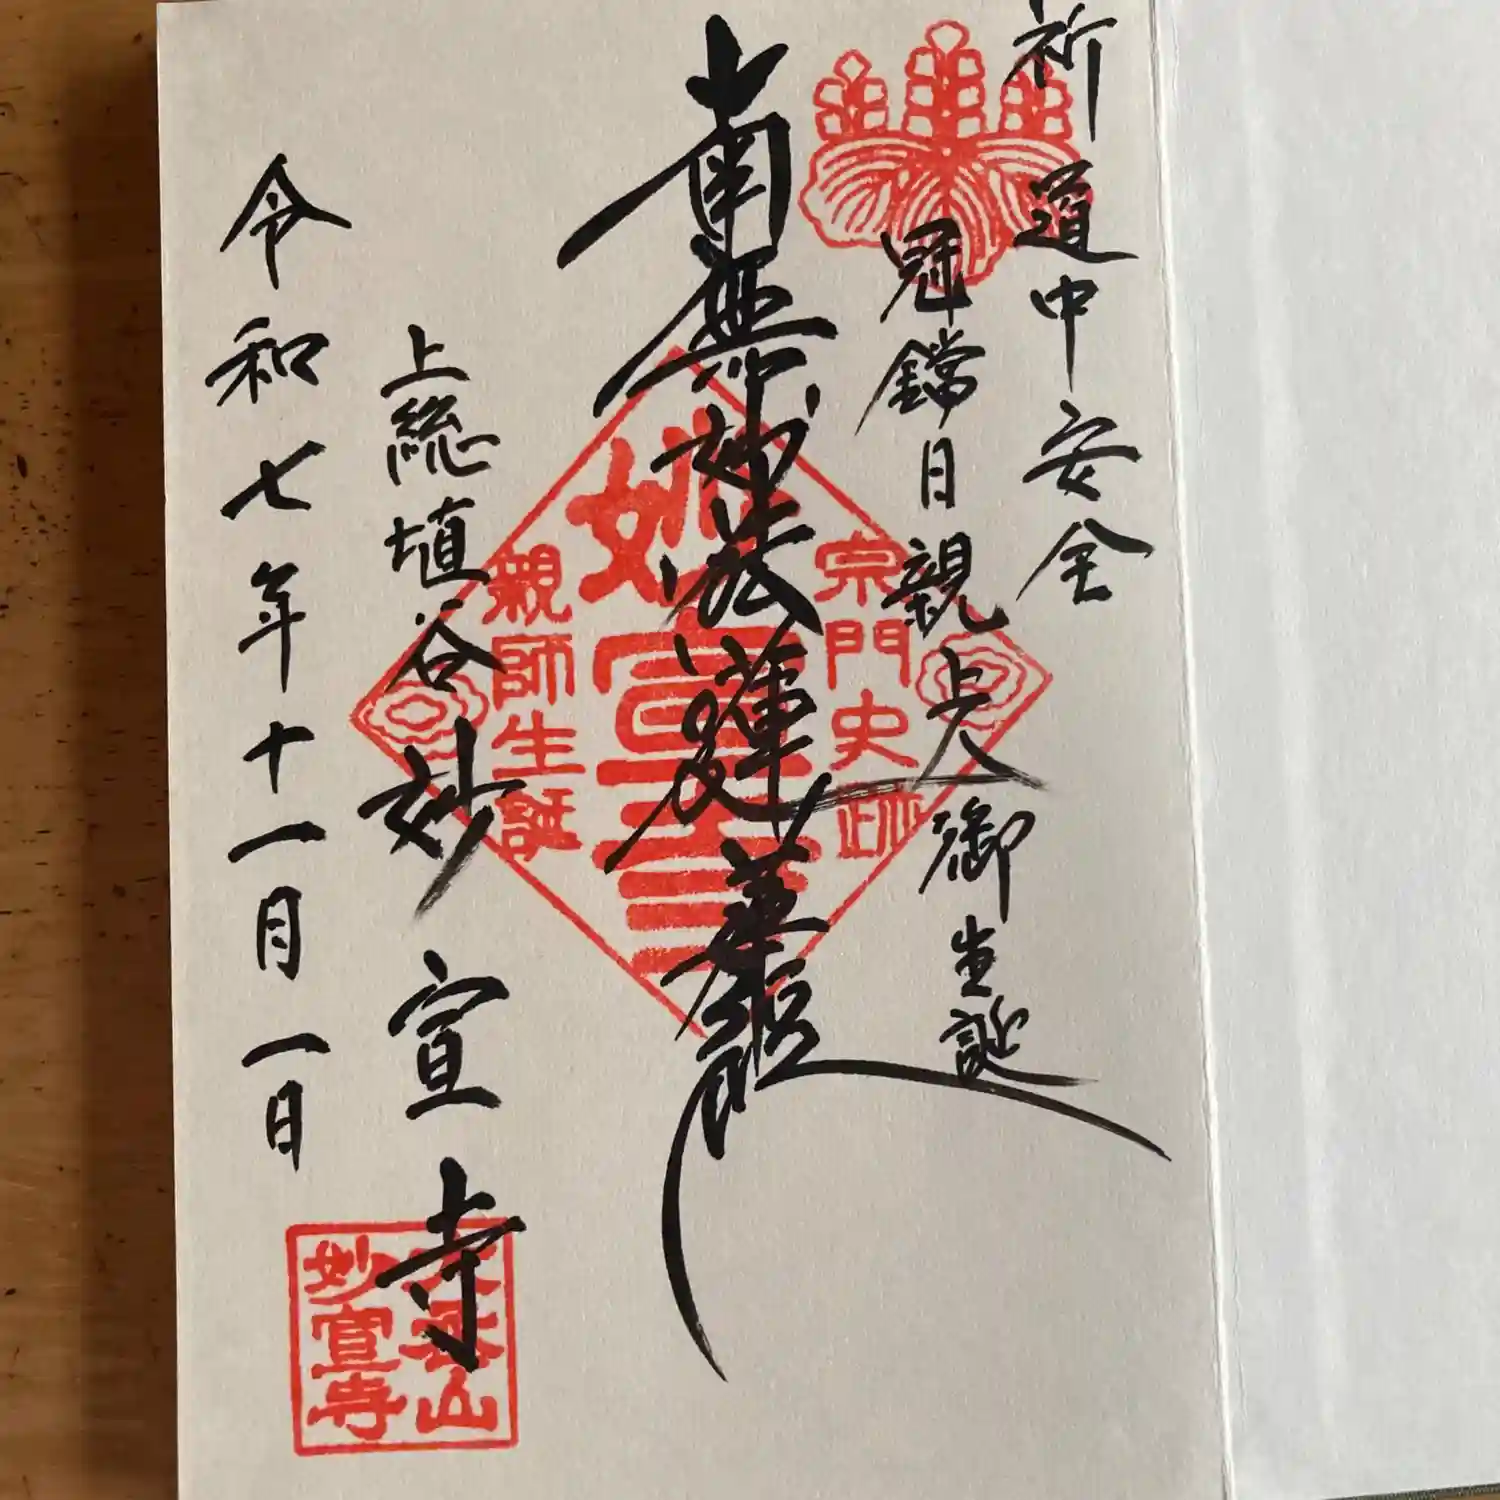 祈道中安全
冠鐺日親上人御生誕
南無妙法蓮華経
上総埴谷妙宣寺
令和七年十一月一日
宗門史跡
妙宣寺
親師生誕
山
妙宣寺